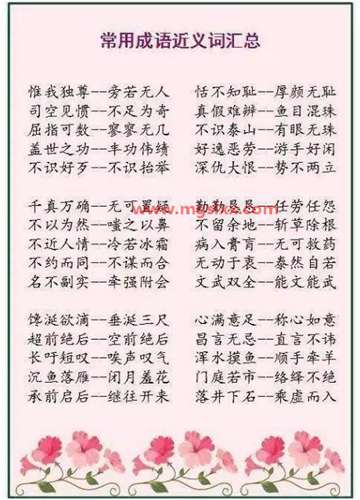 常用成语近义词汇总
惟我独尊--旁若无人 恬不知耻--厚颜无耻
司空见惯--不足为奇 真假难辨--鱼目混珠
屈指可数--寥寥无几 不识泰山--有眼无珠
盖世之功--丰功伟绩 好逸恶劳--游手好闲
不识好歹--不识抬举 深仇大恨--势不两立
千真万确--无可置疑 勤勤恳恳--任劳任怨
www.mgslxz.com
不以为然--嗤之以鼻 不留余地--斩草除根
不近人情--冷若冰霜 病入膏肓--无可救药
不约而同--不谋而合 无动于衷--泰然自若
名不副实--牵强附会 文武双全--能文能武
馋涎欲滴--垂涎三尺 心满意足--称心如意
超前绝后--空前绝后 昌言无忌--直言不讳
长吁短叹--唉声叹气 浑水摸鱼--顺手牵羊
沉鱼落雁--闭月羞花 门庭若市--络绎不绝
承前启后--继往开来 落井下石--乘虚而入